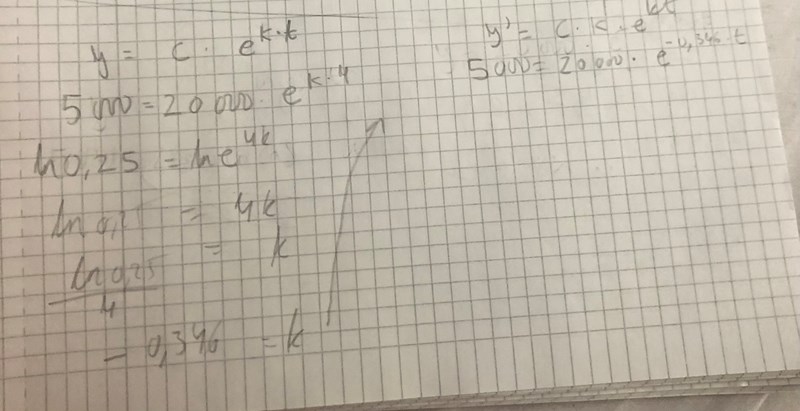 y = c · e^k·t
5000 = 20 000 · e^k·4
ln 0,25 = ln e^4k
ln 0,25 = 4k
ln 0,25 / 4 = k
- 0,346 = k
y' = c · k · e^kt
5000 = 20 000 · e^-0,346 t